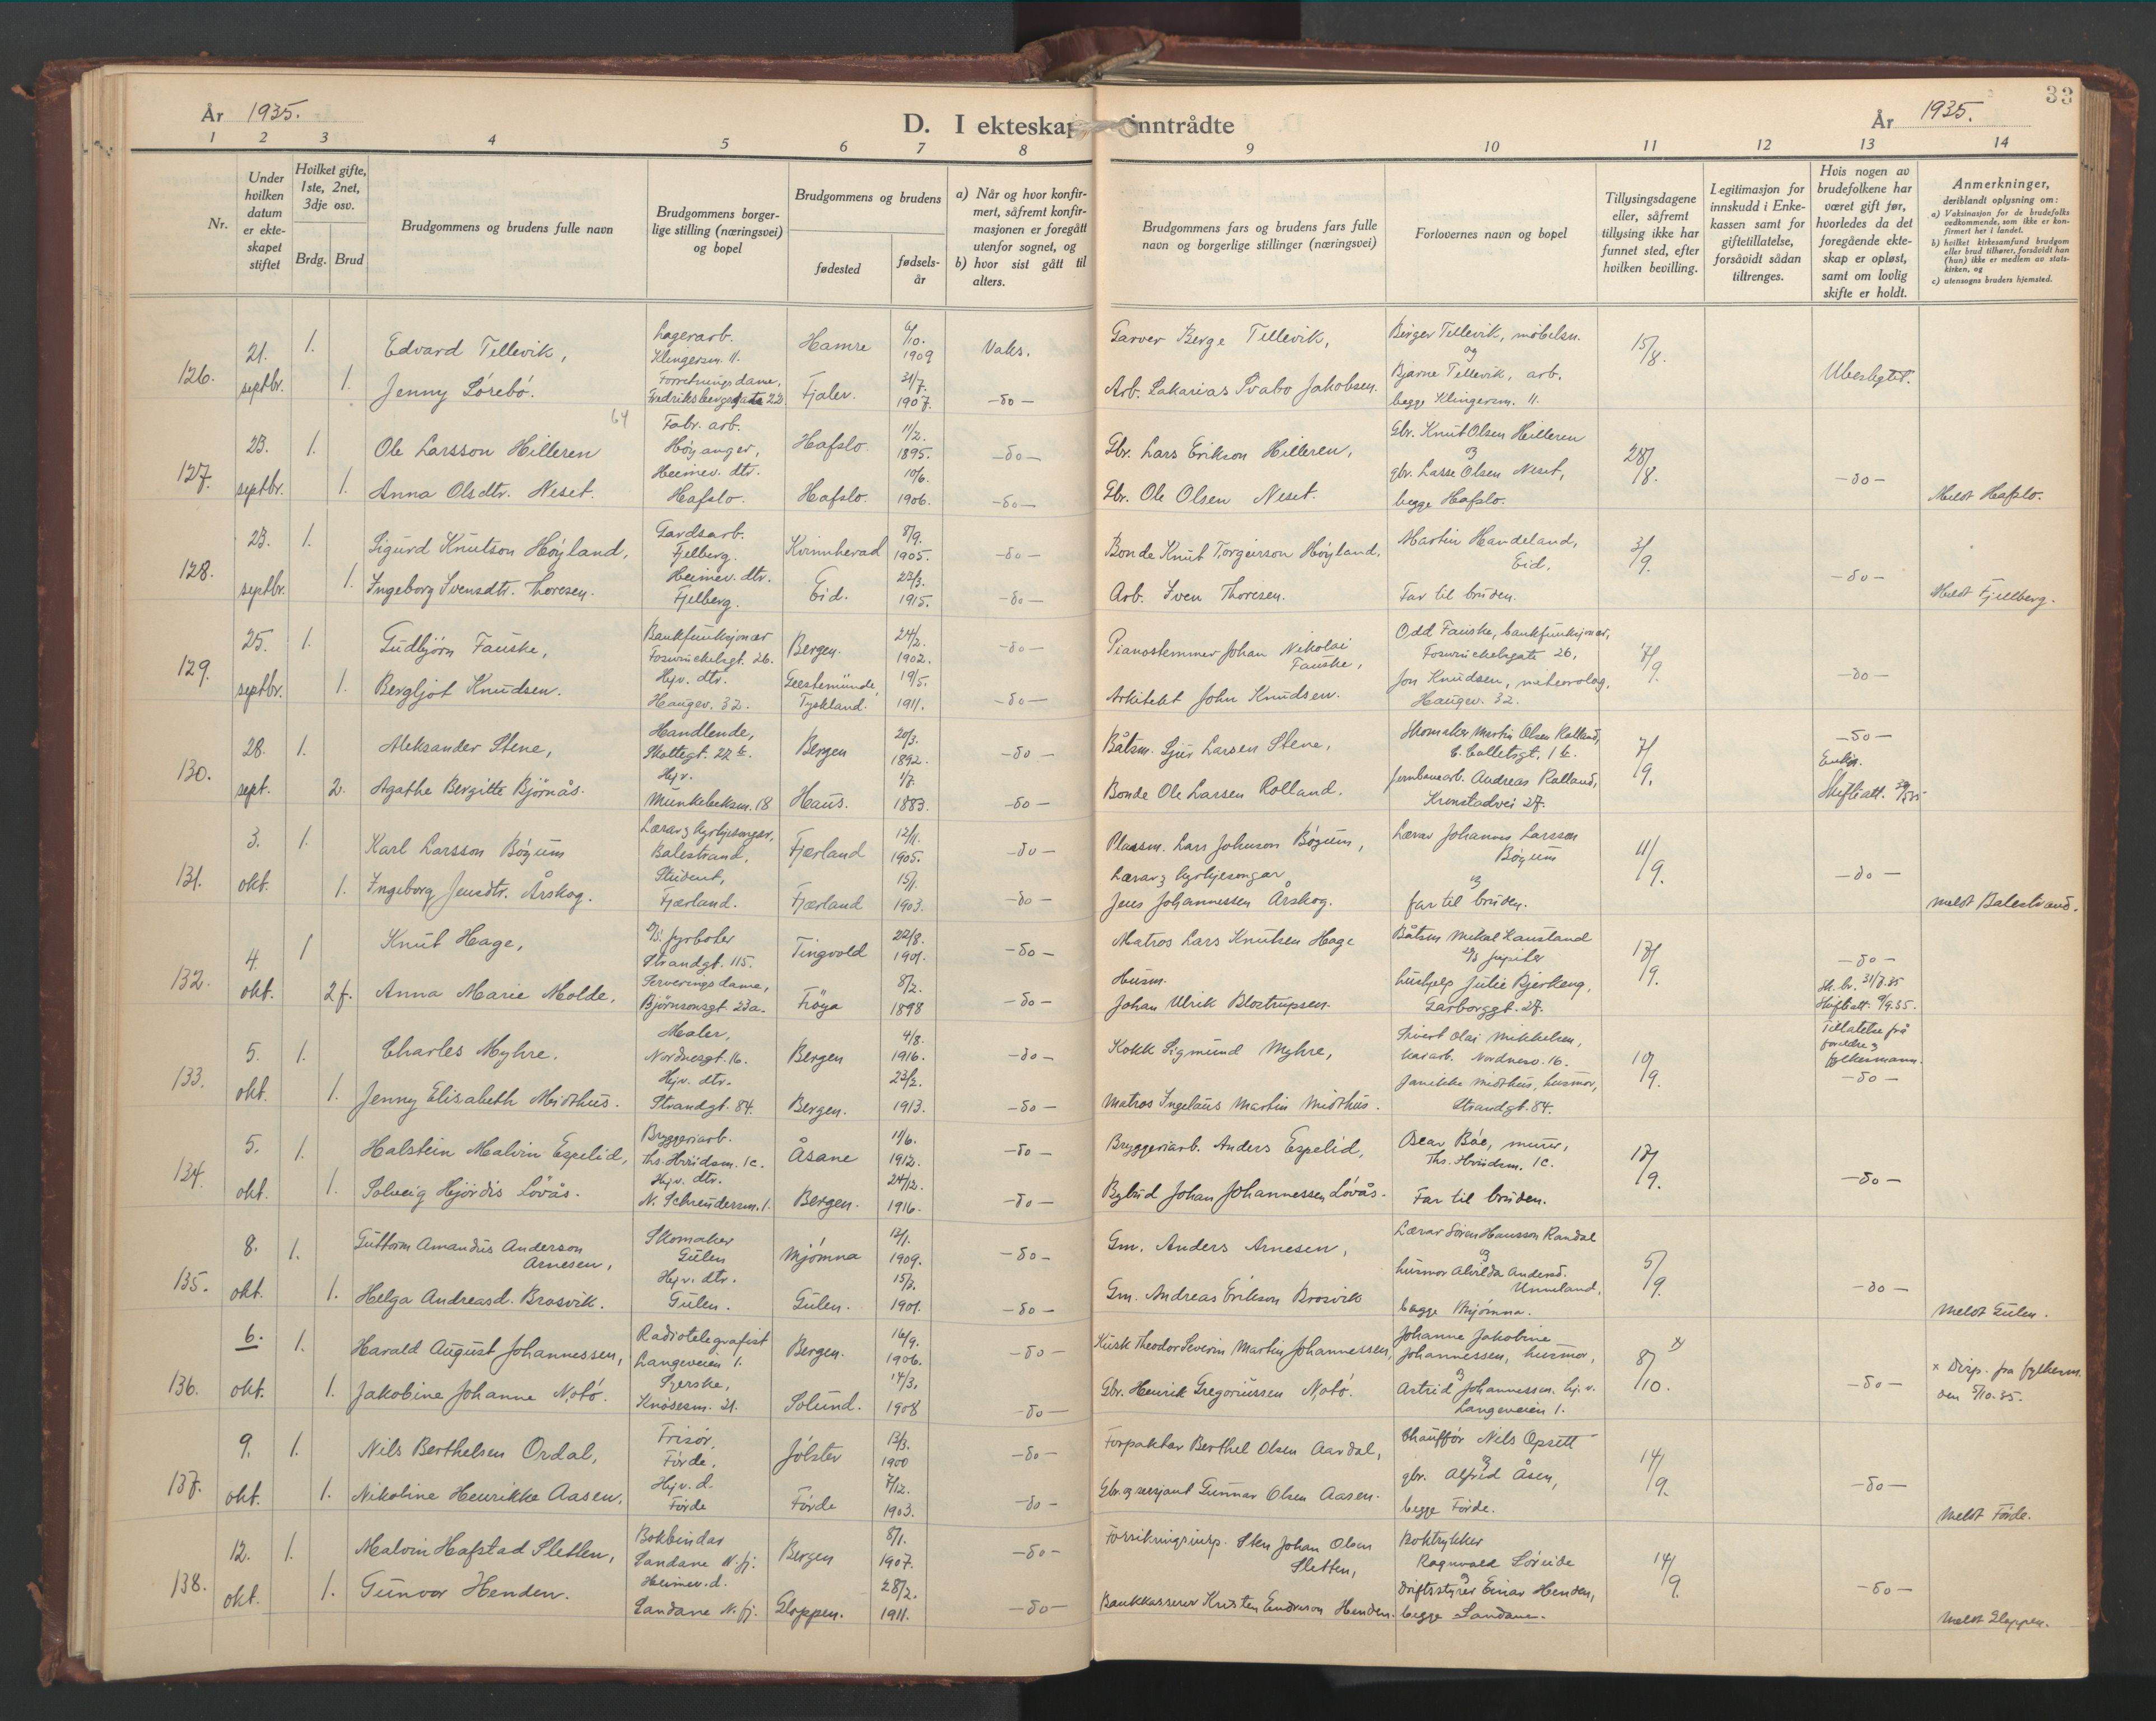 År 1935.
D. I ekteskap inntrådte
År 1935.
33
1 2 3 4 5 6 7 8 9 10 11 12 13 14
Nr.
Under hvilken datum er ekteskapet stiftet
Hvilket gifte, 1ste, 2net, 3dje osv.
Brdg. Brud
Brudgommens og brudens fulle navn
Brudgommens borgerlige stilling (næringsvei) og bopel
Brudgommens og brudens
fødested
fødselsår
a) Når og hvor konfirmert, såfremt konfirmasjonen er foregått utenfor sognet, og
b) hvor sist gått til alters.
Brudgommens fars og brudens fars fulle navn og borgerlige stillinger (næringsvei)
Forlovernes navn og bopel
Tillysingsdagene eller, såfremt tillysing ikke har funnet sted, efter hvilken bevilling.
Legitimasjon for innskudd i Enkekassen samt for giftetillatelse, forsåvidt sådan tiltrenges.
Hvis nogen av brudefolkene har været gift før, hvorledes da det foregående ekteskap er opløst, samt om lovlig skifte er holdt.
Anmerkninger, deriblandt oplysning om:
a) Vaksinasjon for de brudefolks vedkommende, som ikke er konfirmert her i landet.
b) hvilket kirkesamfund brudgom eller brud tilhører, forsåvidt han (hun) ikke er medlem av statskirken, og
c) utensogns bruders hjemsted.
126. 21. septbr. 1. Edvard Tellevik, Lagerarb. Klingersm. 11. Hamre 6/10. 1909 Vaks. Garver Berge Tellevik, Birger Tellevik, møbelsn. og 15/8. Ubeslegtet.
1. Jenny Sørebø. Forretningsdame, Fredriksbergsgata 22 Fjaler. 31/7. 1907. -do- Arb. Sakarias Svabo Jakobsen. Bjarne Tellevik, arb. begge Klingersm. 11.
64
127. 23. septbr. 1. Ole Larsson Hilleren Fabr. arb. Høyanger, Hafslo. 11/2. 1895. -do- Gbr. Lars Erikson Hilleren, Gbr. Knut Olsen Hilleren og 28/8. -do-
1. Anna Olsdtr. Neset. Heimev. dtr. Hafslo. Hafslo. 10/6. 1906. -do- Gbr. Ole Olsen Neset. gbr. Lasse Olsen Neset, begge Hafslo. Meldt Hafslo.
128. 23. septbr. 1. Sigurd Knutson Høyland, Gardsarb. Fjelberg. Kvinnherad 8/9. 1905. -do- Bonde Knut Torgeirson Høyland, Martin Handeland, Eid. 3/9. -do-
1. Ingeborg Svensdtr. Thoresen. Heimev. dtr. Fjelberg. Eid. 23/3. 1915. -do- Arb. Sven Thoresen. Far til bruden. Meldt Fjellberg.
129. 25. septbr. 1. Gudbjørn Fauske, Bankfunksjonær Foswinckelsgt. 26. Bergen. 24/2. 1902. -do- Pianostemmer Johan Nikolai Fauske, Odd Fauske, bankfunksjonær, Foswinckelsgate 26, 7/9. -do-
1. Bergljot Knudsen. Hjv. dtr. Haugev. 32. Geestemünde, Tyskland. 19/5. 1911. -do- Arkitekt John Knudsen. Jon Knudsen, meteorolog, Haugev. 32.
130. 28. sept. 1. Aleksander Stene, Handlende, Skottegt. 22 b. Bergen 20/3. 1892. -do- Båtsm. Sjur Larsen Stene, Skomaker Martin Olsen Rolland, C. Collettsgt. 1 b. 7/9. -do-
2. Agathe Bergitte Bjørnås. Hjv. Munkebeksm. 18 Haus. 1/7. 1883. -do- Bonde Ole Larsen Rolland. Jernbanearb. Andreas Rolland, Kronstadvei 27. Enke. Skifteatt.
131. 3. okt. 1. Karl Larsson Bøyum Lærar og kyrkjesongar, Balestrand, Fjærland 12/11. 1905. -do- Plassm. Lars Johnson Bøyum, Lærar Johannes Larsson Bøyum og 11/9. -do-
1. Ingeborg Jensdtr. Årskog. Student, Fjærland. Fjærland 15/1. 1903. -do- Lærar og kyrkjesongar Jens Johannessen Årskog. far til bruden. meldt Balestrand.
132. 4. okt. 1 Knut Hage, D/S fyrbøter Strandgt. 115. Tingvold 22/8. 1901. -do- Matros Lars Knutsen Hage Båtsm Mikal Haustand D/S Jupiter 13/9. -do-
2 f. Anna Marie Molde, Serveringsdame, Bjørnsonsgt. 23a. Frøya 8/2. 1898 -do- Husm. Johan Ulrik Blostrupsen. hushjelp Julie Bjerkeng, Garborggt. 27. Sk. br. 31/7.35 Skifteatt. 9/9.35.
133. 5. okt. 1. Charles Myhre. Maler, Nordnesgt. 16. Bergen 4/8. 1916. -do- Kokk Sigmund Myhre, Sivert Olai Mikkelsen, havarb. Nordnesv. 16. 10/9. Tillatelse frå foreldre og fylkesmann.
1. Jenny Elisabeth Midthus. Hjv. dtr. Strandgt. 84. Bergen. 23/2. 1913. -do- Matros Ingelaus Martin Midthus. Janikke Midthus, husmor, Strandgt. 84. -do-
134. 5. okt. 1. Halstein Malvin Espelid, Bryggeriarb. Ths. Hvidsm. 1c. Åsane 11/6. 1912. -do- Bryggeriarb. Anders Espelid, Oscar Bøe, murer, Ths. Hvidsm. 1c. 17/9. -do-
1. Solveig Hjørdis Løvås. Hjv. dtr. N. Schreudersm. 1. Bergen. 24/12. 1916. -do- Bybud Johan Johannessen Løvås. Far til bruden.
135. 8. okt. 1. Guttorm Amandus Anderson Arnesen, Skomaker Gulen Mjømna 12/1. 1909. -do- Gm. Anders Arnesen, Lærar Søren Hansson Randal og 5/9. -do-
1. Helga Andreasd. Brosvik. Hjv. dtr. Gulen. Gulen. 15/3. 1901. -do- Gm. Andreas Erikson Brosvik husmor Alvilda Andersd. Unneland, begge Mjømna. meldt Gulen.
136. 6. okt. 1. Harald August Johannessen, Radiotelegrafist Langeveien 1. Bergen. 16/9. 1906. -do- Kusk Theodor Severin Martin Johannessen, Johanne Jakobine Johannessen, husmor, og 8/10. x -do- x Disp. fra fylkesm. den 5/10.35.
1. Jakobine Johanne Notø. Syerske, Knøsesm. 21. Solund. 14/3. 1908 -do- Gbr. Henrik Gregoriussen Notø. Astrid Johannessen. hj. v. Langeveien 1.
137. 9. okt. 1. Nils Berthelsen Ordal, Frisør, Førde, Jølster 13/3. 1900 -do- Forpakter Berthel Olsen Aardal, Chauffør Nils Opsett og 14/9. -do-
1. Nikoline Henrikke Aasen, Hjv. d. Førde Førde 7/12. 1903. -do- Gbr. og sersjant Gunnar Olsen Aasen. gbr. Alfred Åsen, begge Førde. Meldt Førde.
138. 12. okt. 1. Malvin Hafstad Sletten, Bokbindar Sandane N. fj. Bergen 8/1. 1907. -do- Forsikringsinsp. Sten Johan Olsen Sletten, Boktrykker Ragnvald Søreide og 14/9. -do-
1. Gunvor Henden. Heimev. d. Sandane N. fj. Gloppen. 28/2. 1911. -do- Bankkasserer Kristen Endreson Henden. driftsstyrer Einar Henden, begge Sandane. Meldt Gloppen.